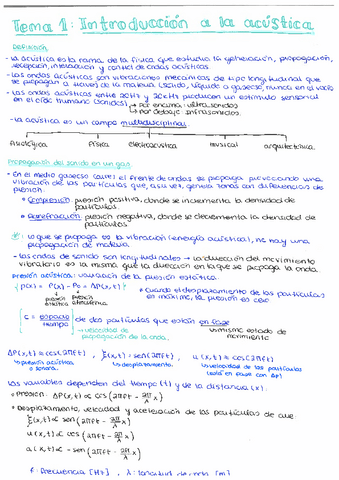 Tema 1: Introducción a la acústica
Definición
- La acústica es la rama de la física que estudia la generación, propagación,
recepción, interacción y control de ondas acústicas.
- Las ondas acústicas son vibraciones mecánicas de tipo longitudinal que
se propagan a través de la materia (sólido, líquido o gaseoso, nunca en el vacío)
- Las ondas acústicas entre 20Hz y 20kHz producen un estímulo sensorial
en el oído humano (sonidos) → por encima: ultrasonidos
→ por debajo: infrasonidos.
- La acústica es un campo multidisciplinar.
fisiológica física electroacústica musical arquitectónica.
Propagación del sonido en un gas
- En el medio gaseoso (aire) el frente de ondas se propaga provocando una
vibración de las partículas que, a su vez, genera zonas con diferencias de
presión.
• Compresión: presión positiva, donde se incrementa la densidad de
partículas.
• Rarefracción: presión negativa, donde se decrementa la densidad de
partículas
: lo que se propaga es la vibración (energía acústica), no hay una
propagación de materia.
- Las ondas de sonido son longitudinales → la dirección del movimiento
vibratorio es la misma que la dirección en la que se propaga la onda.
Presión acústica: variación de la presión estática.
p(x) = P(x) - P0 = ΔP(x,t)
presión estática
presión atmosférica
* Cuando el desplazamiento de las partículas
es máximo, la presión es cero
c = espacio / tiempo de dos partículas que están en fase
→ velocidad de
propagación de la onda.
↳ mismo estado de
movimiento
ΔP(x,t) ≅ cos(2πft) , ξ(x,t) ≈ sen(2πft) , u(x,t) ≅ cos(2πft)
↳ presión acústica
o sonora.
↳ desplazamiento.
↳ velocidad de las partículas
(está en fase con ΔP)
Las variables dependen del tiempo (t) y de la distancia (x).
• Presión: ΔP(x,t) ∝ cos(2πft - 2π/λ x)
• Desplazamiento, velocidad y aceleración de las partículas de aire
ξ(x,t) ∝ sen(2πft - 2π/λ x)
u(x,t) ∝ cos(2πft - 2π/λ x)
a(x,t) ∝ -sen(2πft - 2π/λ x)
f: frecuencia [Hz] , λ: longitud de onda [m]